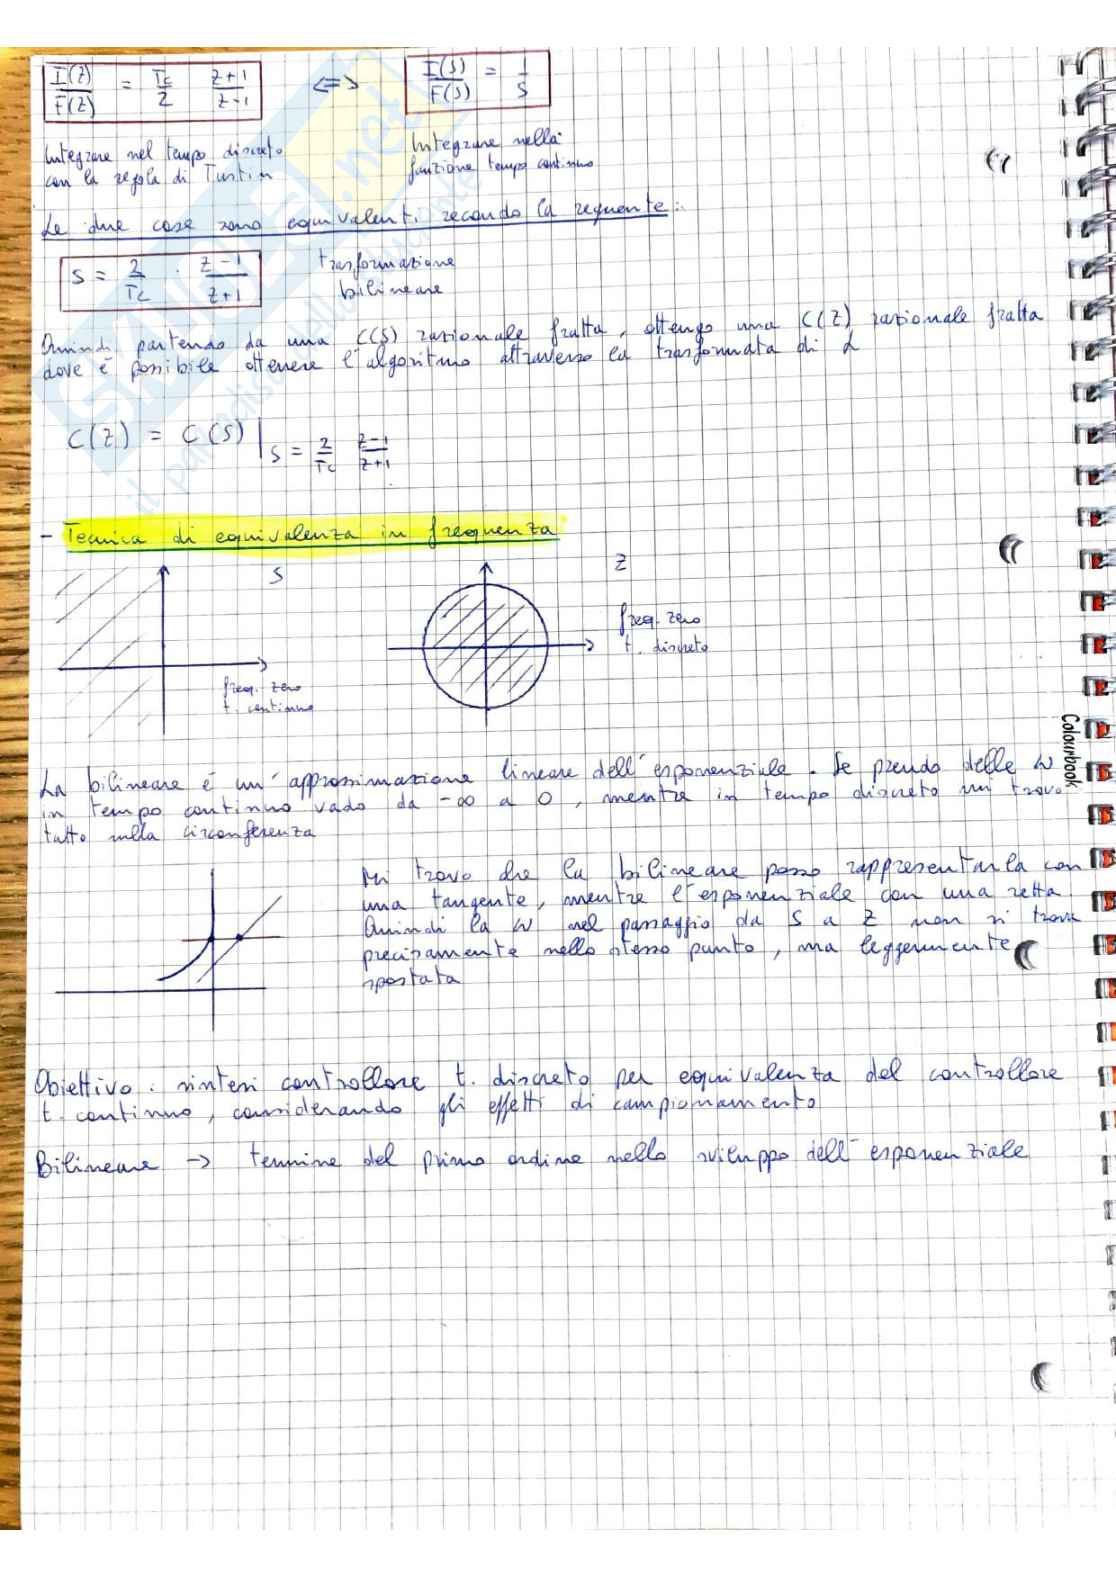 I(z)/F(z) = Tc/2 z+1/z-1 <=> I(s)/F(s) = 1/s
Integrare nel tempo discreto
con la regola di Tustin
Integrare nella
funzione tempo continuo
Le due cose sono equivalenti secondo la seguente:
s = 2/Tc · z-1/z+1
trasformazione
bilineare
Quindi partendo da una C(s) razionale fratta, ottengo una C(z) razionale fratta
dove è possibile ottenere l'algoritmo attraverso la trasformata di
C(z) = C(s) | s = 2/Tc z-1/z+1
- Tecnica di equivalenza in frequenza
S
freq. zero
t. continuo
Z
freq. zero
t. discreto
Colourbook
La bilineare è un'approssimazione lineare dell'esponenziale. Se prendo delle ω
in tempo continuo vado da -∞ a 0, mentre in tempo discreto mi trovo
tutto sulla circonferenza
Mi trovo che la bilineare posso rappresentarla con
una tangente, mentre l'esponenziale con una retta
Quindi la ω nel passaggio da s a z non si trova
precisamente nello stesso punto, ma leggermente
spostata
Obiettivo: sintesi controllore t. discreto per equivalenza del controllore
t. continuo, considerando gli effetti di campionamento
Bilineare -> termine del primo ordine nello sviluppo dell'esponenziale